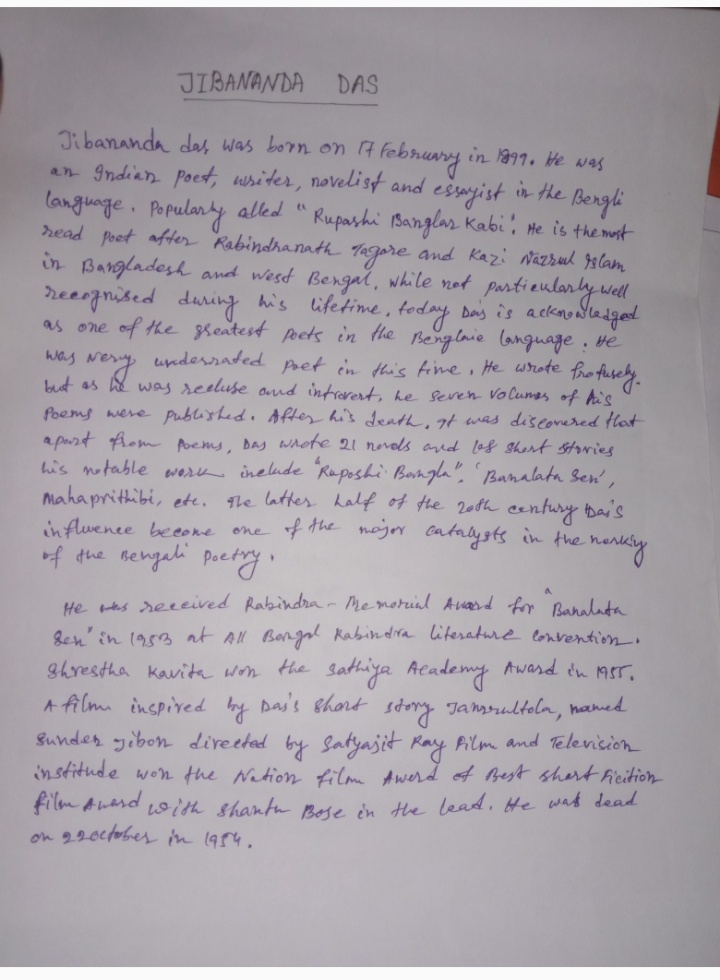 JIBANANDA DAS
Jibananda das, was born on 17 February in 1899. He was
an Indian poet, writer, novelist and essayist in the Bengli
language. Popularly alled "Rupashi Banglar Kabi". He is the most
read poet after Rabindranath Tagore and Kazi Nazrul Islam
in Bangladesh and West Bengal. While not particularly well
recognised during his lifetime, today Das is acknowledged
as one of the greatest poets in the language. He
was very underrated poet in this time. He wrote profusely,
but as he was recluse and introvert, he seven volumes of his
poems were published. After his death, It was discovered that
apart from poems, Das wrote 21 novels and 108 short stories
his notable work include "Ruposhi Bangla", 'Banalata Sen',
Mahaprithibi, etc. The latter half of the 20th century Das's
influence become one of the major catalysts in the
of the Bengali poetry.
He was received Rabindra-Memorial Award for "Banalata
Sen" in 1953 at All Bengal Rabindra literature convention.
Shrestha Kavita won the Sathiya Academy Award in 1955.
A film inspired by Das's short story named
Sunder Jibon directed by Satyajit Ray Film and Television
institude won the Nation film Award of Best short Ficition
film Award with Shantu Bose in the lead. He was dead
on 22 october in 1954.